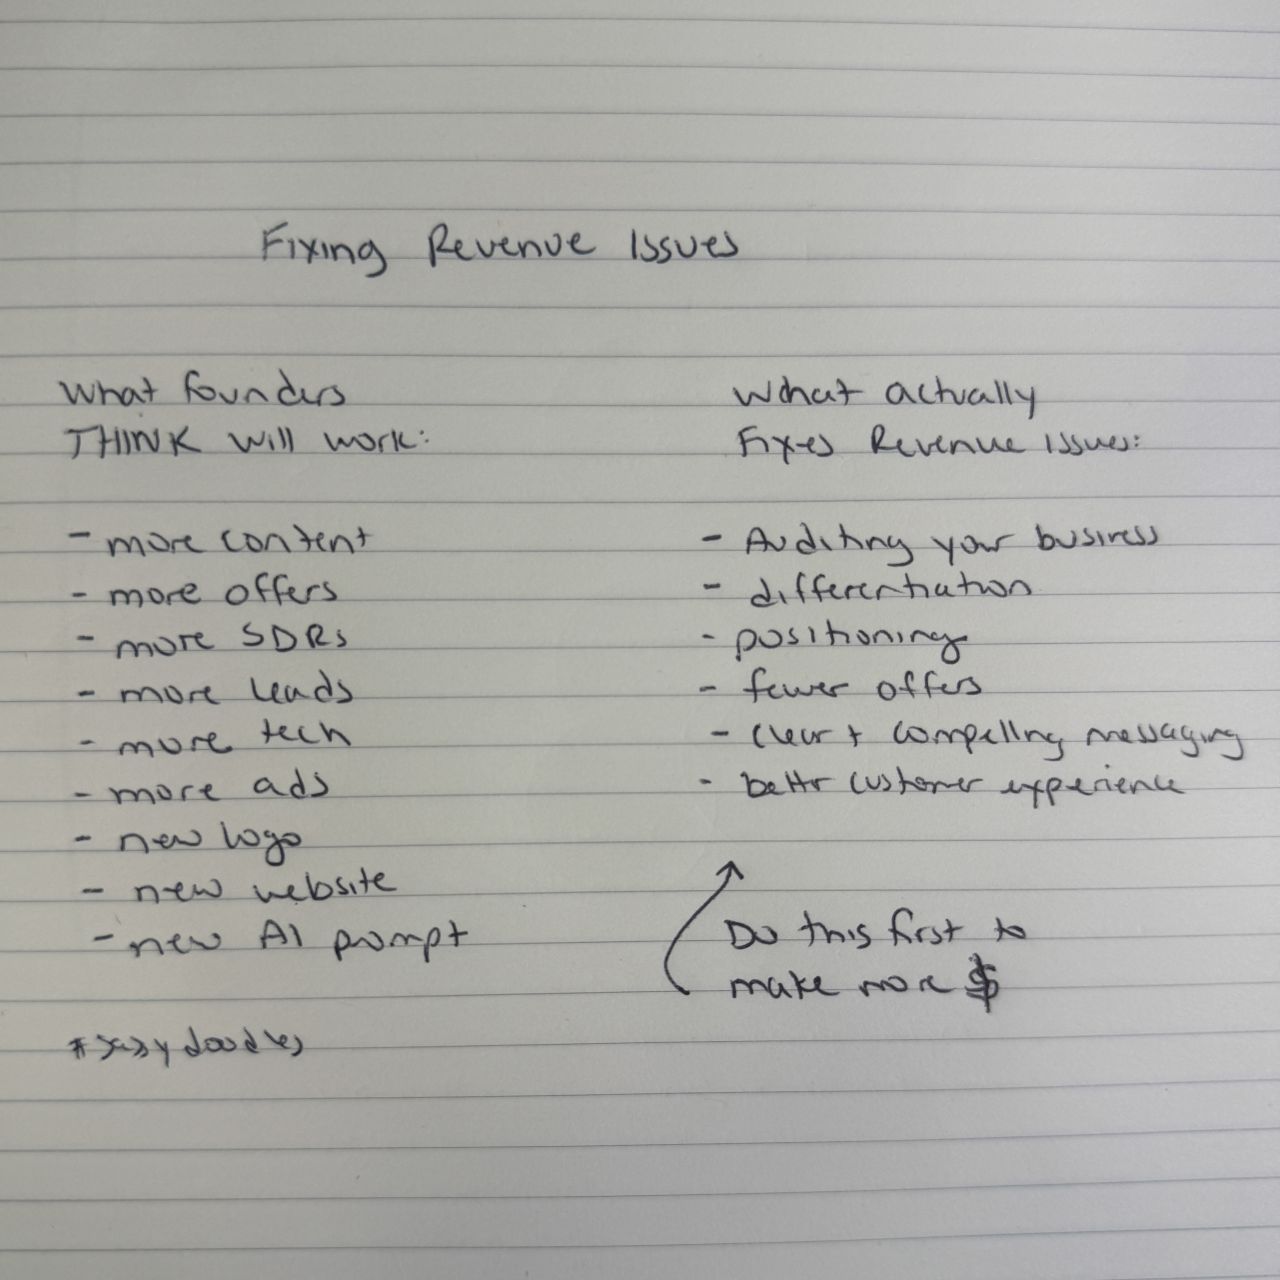 Fixing Revenue Issues
What founders
THINK will work:
- more content
- more offers
- more SDRs
- more leads
- more tech
- more ads
- new logo
- new website
- new AI prompt
What actually
Fixes Revenue Issues:
- Auditing your business
- differentiation
- positioning
- fewer offers
- clear + compelling messaging
- better customer experience
Do this first to
make more $